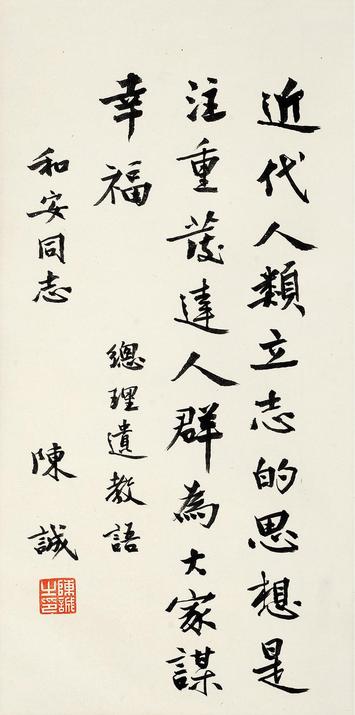 近代人類立志的思想是
注重發達人群為大家謀
幸福
總理遺教語
和安同志
陳誠
陳誠之印